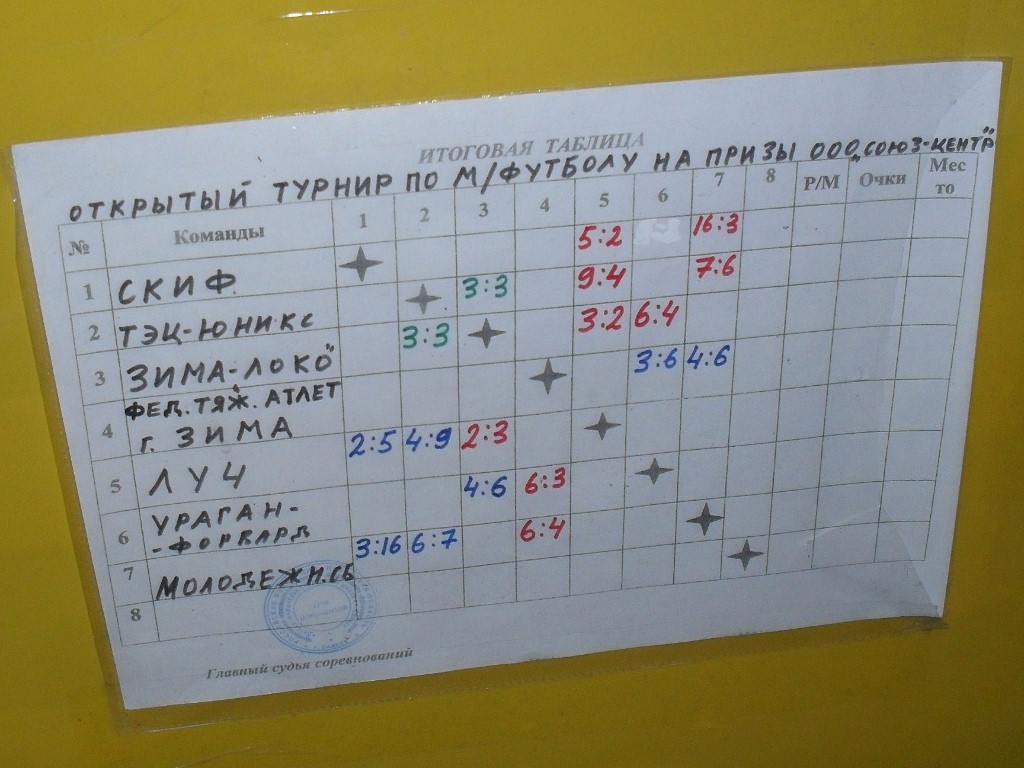 ИТОГОВАЯ ТАБЛИЦА
ОТКРЫТЫЙ ТУРНИР ПО М/ФУТБОЛУ НА ПРИЗЫ ООО „СОЮЗ-ЦЕНТР"
№ Команды 1 2 3 4 5 6 7 8 Р/М Очки Мес
то
1 СКИФ 5:2 16:3
2 ТЭЦ-ЮНИКС 3:3 9:4 7:6
3 ЗИМА-ЛОКО" 3:3 3:2 6:4
ФЕД. ТЯЖ. АТЛЕТ
4 г. ЗИМА 3:6 4:6
5 ЛУЧ 2:5 4:9 2:3
6 УРАГАН-
-ФОРВАРД 4:6 6:3
7 МОЛОДЕЖН.СБ 3:16 6:7 6:4
8
Главный судья соревнований